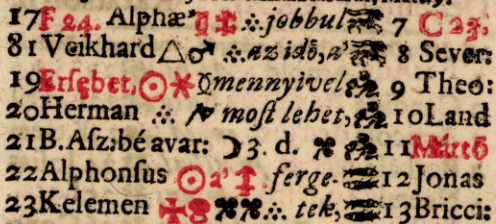 17 F 24. Alphæ ∴ jobbul 7 C 23.
81 Veikhard △♂ ∴ az idõ, a' 8 Sever:
19 Ersebet, ☉ mennyivel 9 Theo:
20 Herman ∴ most lehet, 10 Land
21 B. Asz: bé avar: ☽ 3. d. 11
22 Alphonsus ☉ a' ferge- 12 Jonas
23 Kelemen ∴ tek, 13 Bricci: